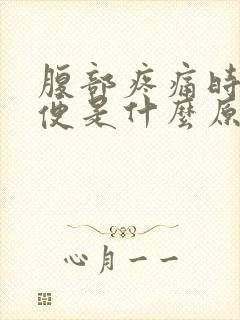 腹部疼痛時
便是什麼原
心月一一